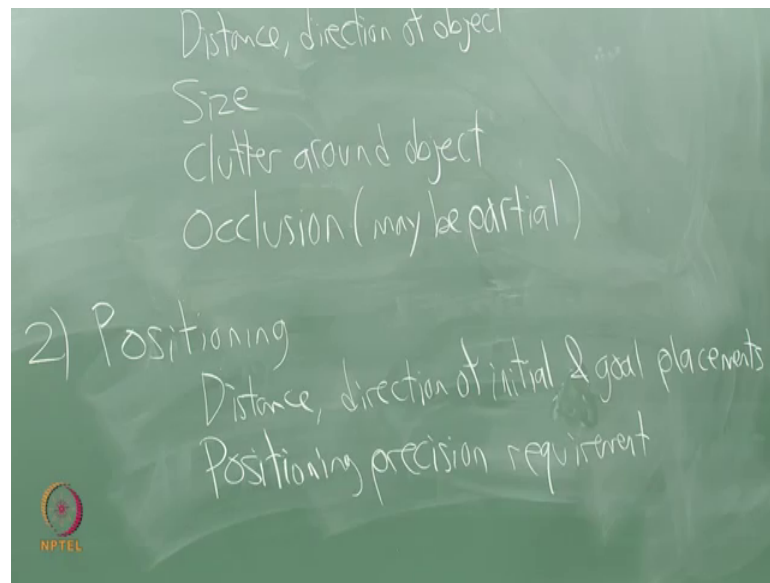 Distance, direction of object
Size
Clutter around object
Occlusion (may be partial)
2) Positioning
Distance, direction of initial & goal placements
Positioning precision requirement
NPTEL